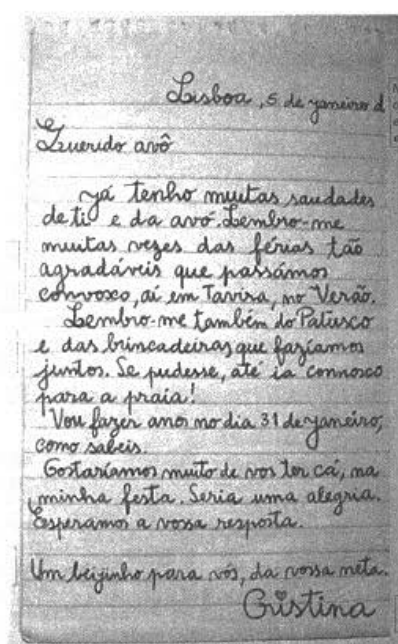 Lisboa, 5 de janeiro d
Querido avô
Já tenho muitas saudades
de ti e da avó. Lembro-me
muitas vezes das férias tão
agradáveis que passámos
convosco, aí em Tavira, no Verão.
Lembro-me também do Patusco
e das brincadeiras que fazíamos
juntos. Se pudesse, até ia connosco
para a praia!
Vou fazer anos no dia 31 de janeiro,
como sabeis.
Gostaríamos muito de vos ter cá, na
minha festa. Seria uma alegria.
Esperamos a vossa resposta.
Um beijinho para vós, da vossa neta.
Cristina